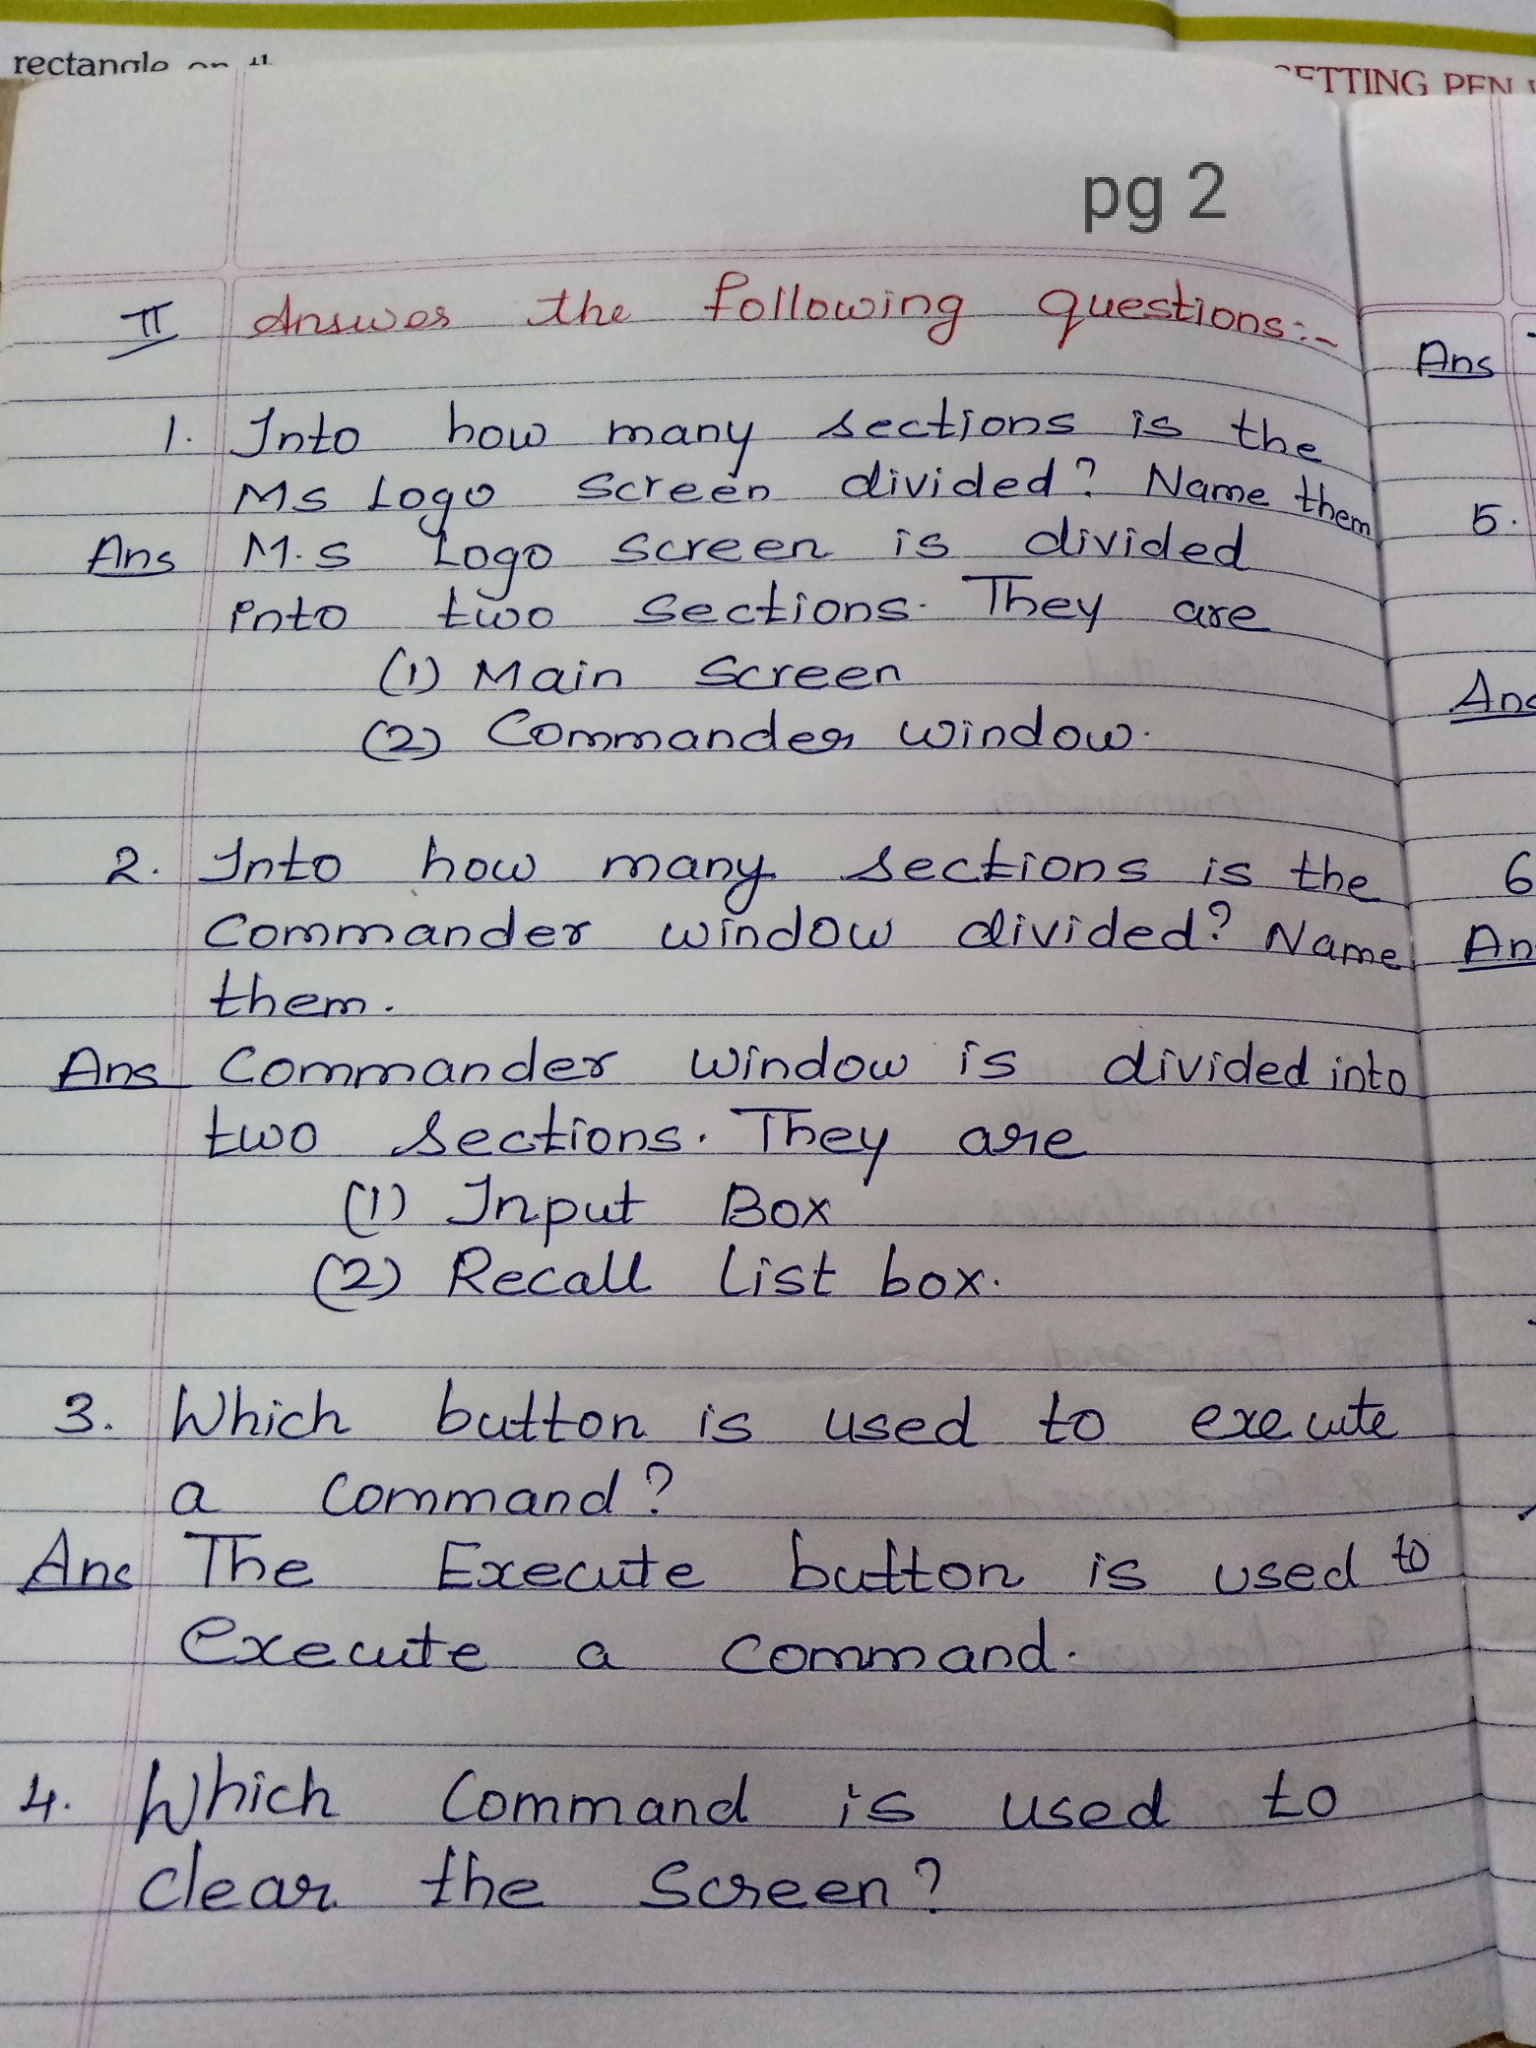 rectangle on th
SETTING PEN
pg 2
II Answer the following questions:-
1. Into how many sections is the
Ms Logo Screen divided? Name them
Ans M.s Logo Screen is divided
into two Sections. They are
(1) Main Screen
(2) Commander window.
2. Into how many sections is the
Commander window divided? Name
them.
Ans Commander window is divided into
two sections. They are
(1) Input Box
(2) Recall List box.
3. Which button is used to execute
a Command?
Ans The Execute button is used to
execute a Command.
4. Which Command is used to
clear the Screen?
Ans
5.
Ans
6
An